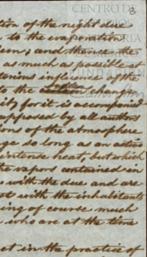 tion of the night due
to the evaporation
 and thence the
as much as possible at
terious influence of the
to the change
ity for it is accompanied
supposed by all authors
ions of the atmosphere
ge so long as an active
intense heat, but which
the vapors contained in
with the due and are
ot with the inhabitants
ing of course much
who are at the time
et in the practice of